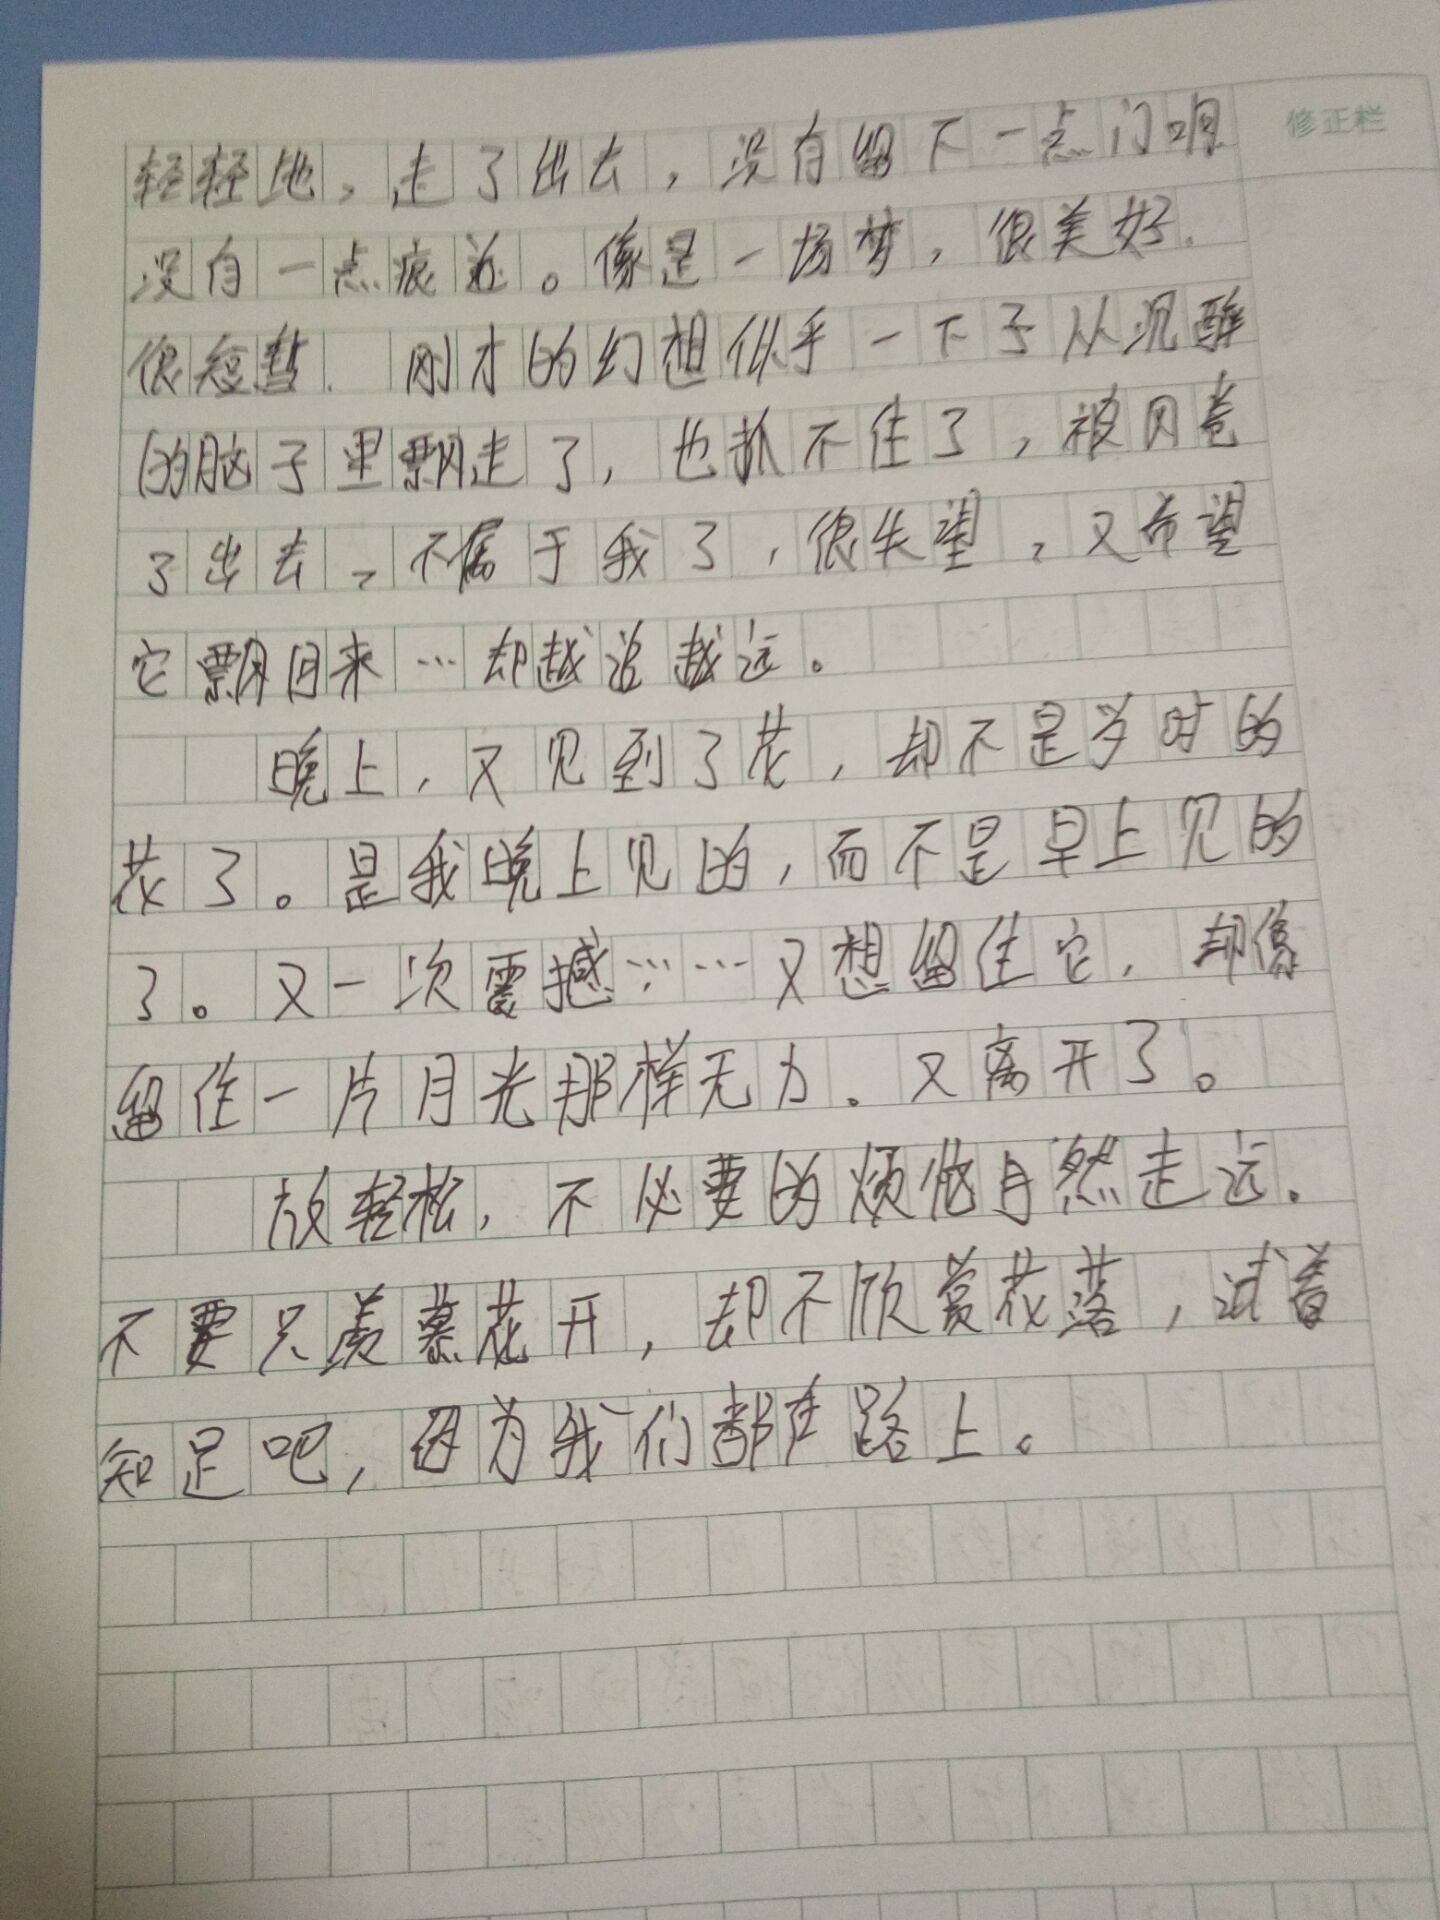 修正栏
轻轻地，走了出去，没有留下一点门
没有一点痕迹。像是一场梦，很美好.
很短暂. 刚才的幻想似乎一下子从沉醉
的脑子里飘走了，也抓不住了，被风卷
了出去，不属于我了，很失望，又希望
它飘回来…却越追越远。
晚上，又见到了花，却不是当时的
花了。是我晚上见的，而不是早上见的
了。又一次震撼……又想留住它，却像
留住一片月光那样无力.又离开了。
放轻松，不必要的烦恼自然走远.
不要只羡慕花开，却不欣赏花落，试着
知足吧，因为我们都在路上。